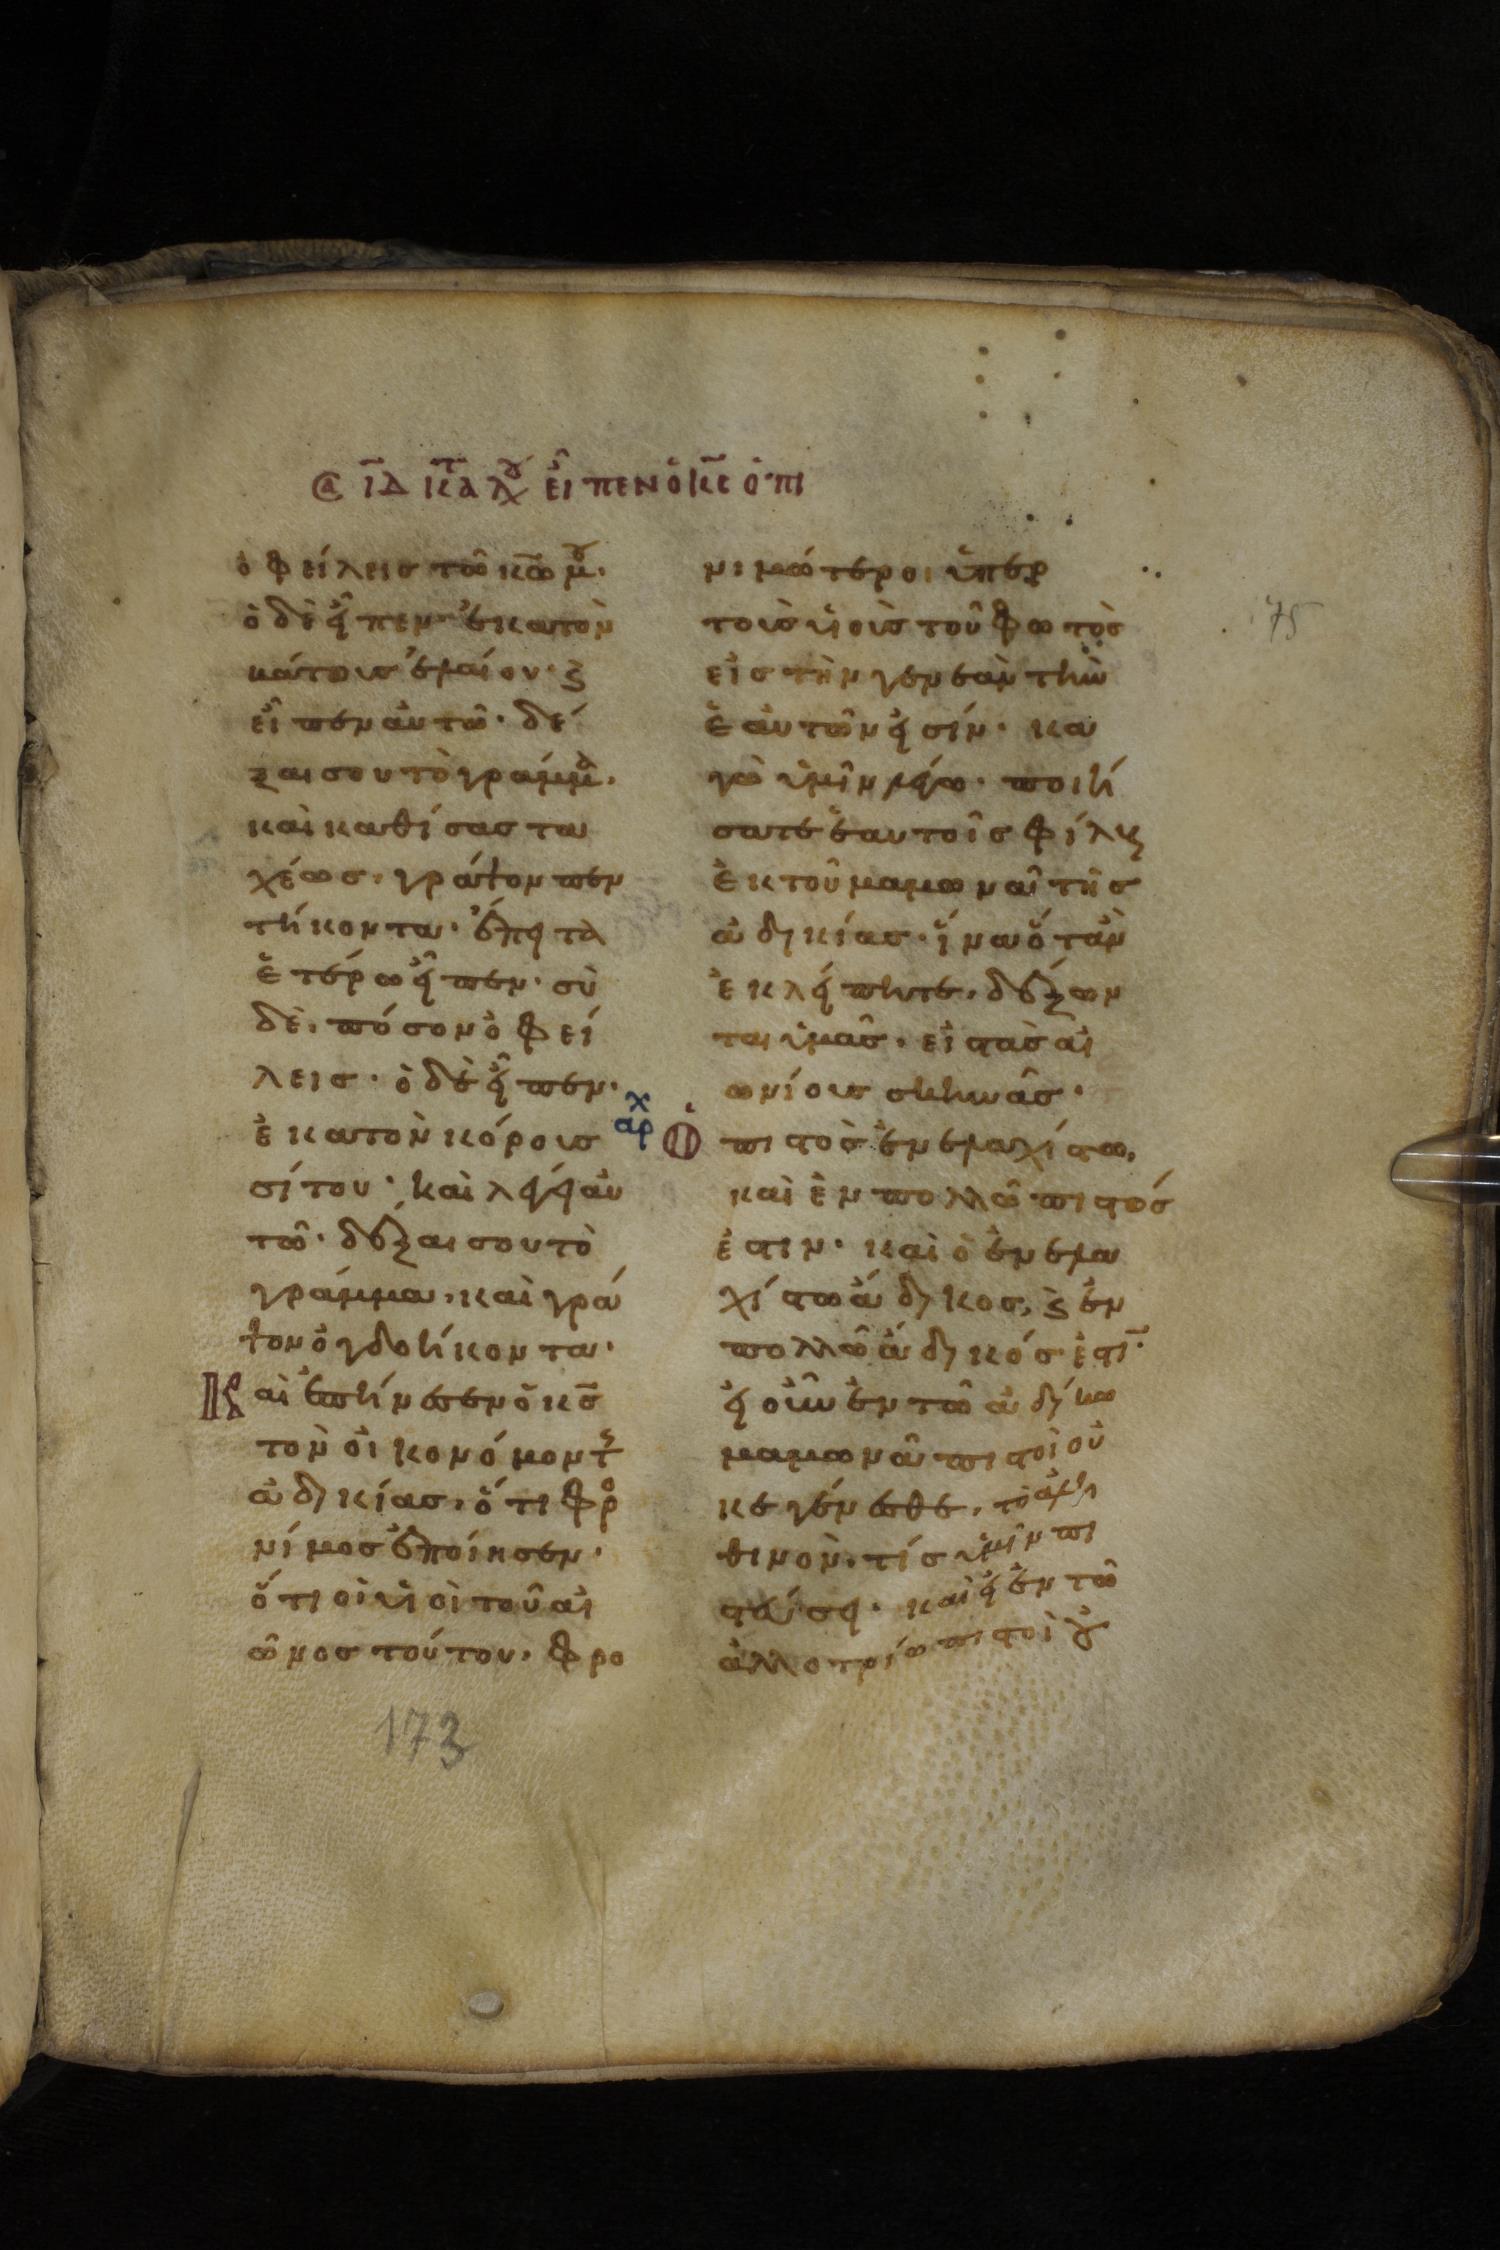 ιδ κτ λου εἶπεν ὁ κς ὁ πι
ὀφείλεις τῶ κῶ μου.
ὁ δὲ εἶπεν· ἑκατὸν
βάτους ἐλαίου· καὶ
εἶπεν αὐτῶ· δέ
ξαι σου τὸ γράμμα.
καὶ καθίσας τα
χέως, γράψον πεν
τήκοντα· ἔπειτα
ἑτέρω εἶπεν· σὺ
δὲ, πόσον ὀφεί
λεις· ὁ δὲ εἶπεν·
ἑκατὸν κόρους
σίτου· καὶ λέγει αὐ
τῶ· δέξαι σου τὸ
γράμμα, καὶ γρά
ψον ὀγδοήκοντα·
Καὶ ἐπήνεσεν ὁ κς
τὸν οἰκονόμον τῆς
ἀδικίας, ὅτι φρο
νίμος ἐποίησεν·
ὅτι οἱ υἱοὶ τοῦ αἰ
ῶνος τούτου, φρο
νιμώτεροι ὑπὲρ
τοὺς υἱοὺς τοῦ φωτὸς
εἰς τὴν γενεὰν τὴν
ἑαυτῶν εἰσίν· κα
γὼ ὑμῖν λέγω· ποιή
σατε ἑαυτοῖς φίλους
ἐκ τοῦ μαμωνᾶ τῆς
ἀδικίας· ἵνα ὅταν
ἐκλείπητε, δέξων
ται ὑμᾶς, εἰς τὰς αἰ
ωνίους σκηνάς·
χ
αρ
Ὁ πιστὸς ἐν ἐλαχίστω,
καὶ ἐν πολλῶ πιστός
ἐστιν· καὶ ὁ ἐν ἐλα
χίστω ἄδικος, καὶ ἐν
πολλῶ ἄδικός ἐστι·
εἰ οὖν ἐν τῶ ἀδίκω
μαμωνᾶ πιστοὶ οὐ
κ ἐγένεσθε, τὸ ἀλη
θινὸν, τίς ὑμῖν πι
στεύσει· καὶ εἰ ἐν τῶ
ἀλλοτρίω πιστοὶ οὐ
75
173